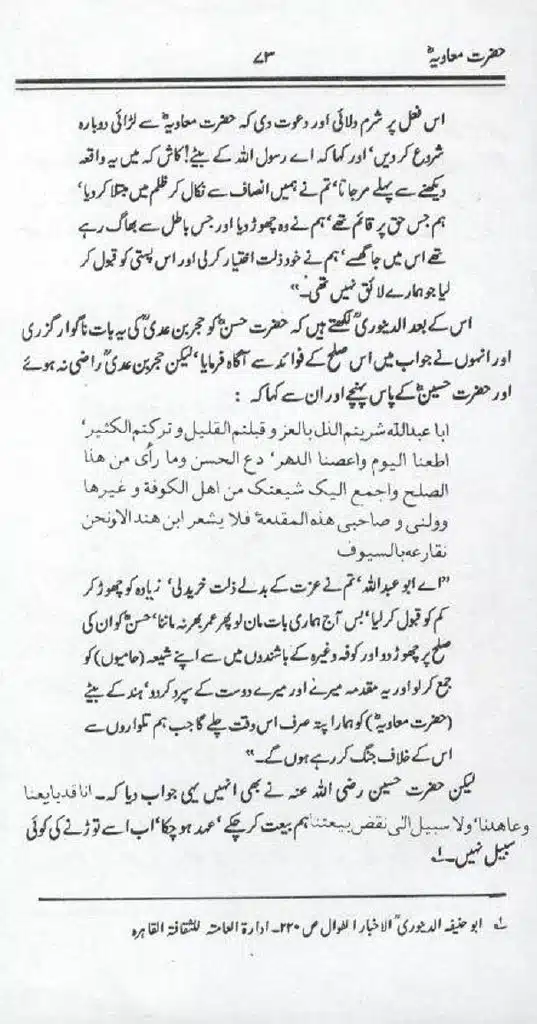 حضرت معاویہؓ ۷۳
اس فعل پر شرم دلائی اور دعوت دی کہ حضرت معاویہؓ سے لڑائی دوبارہ
شروع کر دیں، اور کہا کہ اے رسول اللہ کے بیٹے! کاش کہ میں یہ واقعہ
دیکھنے سے پہلے مر جاتا، تم نے ہمیں انصاف سے نکال کر ظلم میں مبتلا کر دیا،
ہم جس حق پر قائم تھے، ہم نے وہ چھوڑ دیا اور جس باطل سے بھاگ رہے
تھے اس میں جا گھسے، ہم نے خود ذلت اختیار کر لی اور اس پستی کو قبول کر
لیا جو ہمارے لائق نہیں تھی۔"
اس کے بعد الدینوریؒ لکھتے ہیں کہ حضرت حسنؓ کو حجر بن عدیؓ کی یہ بات ناگوار گزری
اور انہوں نے جواب میں اس صلح کے فوائد سے آگاہ فرمایا، لیکن حجر بن عدیؓ راضی نہ ہوئے
اور حضرت حسینؓ کے پاس پہنچے اور ان سے کہا کہ :
ابا عبداللہ شریتم الذل بالعز و قبلتم القلیل و ترکتم الکثیر،
اطعنا الیوم واعصنا الدھر، دع الحسن وما رأی من ھذا
الصلح واجمع الیک شیعتک من اھل الکوفة و غیرھا
وولنی و صاحبی ھذہ المقدمة فلا یشعر ابن ھند الا ونحن
نقارعہ بالسیوف
"اے ابو عبداللہ، تم نے عزت کے بدلے ذلت خرید لی، زیادہ کو چھوڑ کر
کم کو قبول کر لیا، بس آج ہماری بات مان لو پھر عمر بھر نہ ماننا، حسنؓ کو ان کی
صلح پر چھوڑ دو اور کوفہ وغیرہ کے باشندوں میں سے اپنے شیعہ (حامیوں) کو
جمع کر لو اور یہ مقدمہ میرے اور میرے دوست کے سپرد کر دو، ہند کے بیٹے
(حضرت معاویہؓ) کو ہمارا پتہ صرف اس وقت چلے گا جب ہم تلواروں سے
اس کے خلاف جنگ کر رہے ہوں گے۔"
لیکن حضرت حسین رضی اللہ عنہ نے بھی انہیں یہی جواب دیا کہ۔ انا قد بایعنا
وعاھدنا، ولا سبیل الی نقض بیعتنا ہم بیعت کر چکے، عہد ہو چکا، اب اسے توڑنے کی کوئی
سبیل نہیں۔ لے
لے ابو حنیفہ الدینوریؒ الاخبار الطوال ص ۲۲۰۔ ادارۃ العامتہ للثقافۃ القاہرہ